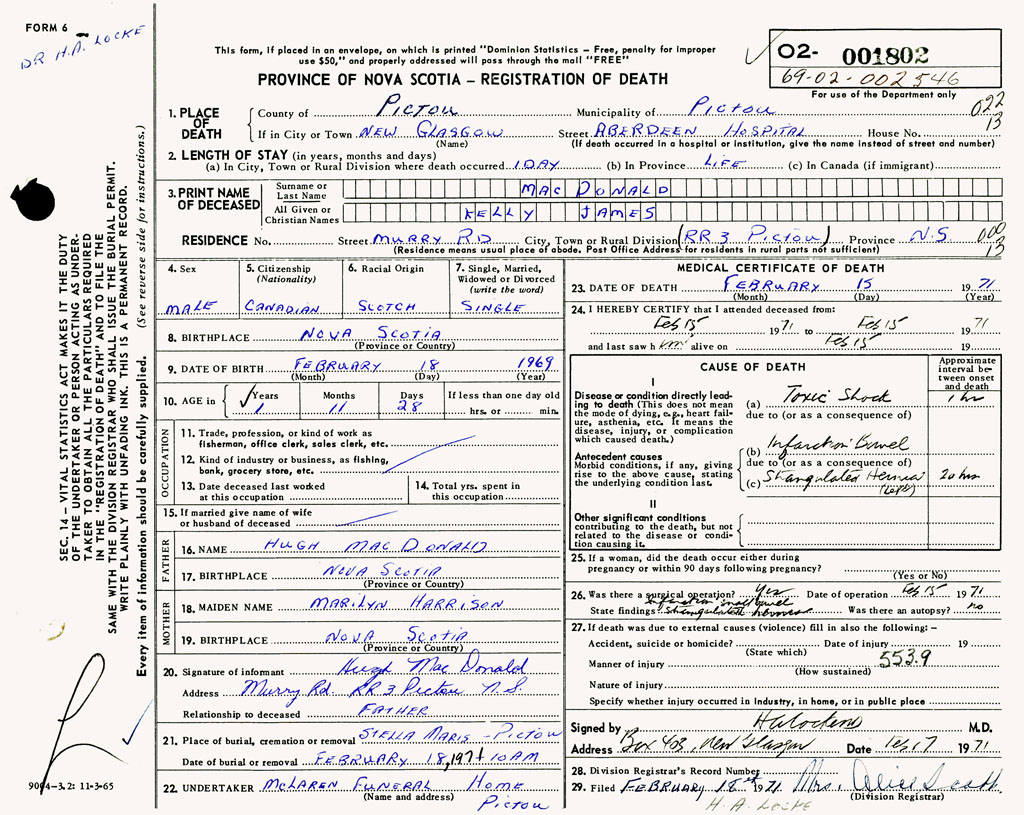 FORM 6
DR H.A. LOCKE
This form, if placed in an envelope, on which is printed "Dominion Statistics – Free, penalty for improper
use $50," and properly addressed will pass through the mail "FREE"
PROVINCE OF NOVA SCOTIA – REGISTRATION OF DEATH
02- 001802
69-02-002546
For use of the Department only
022
13
1. PLACE OF DEATH
County of PICTOU Municipality of PICTOU
If in City or Town NEW GLASGOW Street ABERDEEN HOSPITAL House No.
(Name) (If death occurred in a hospital or institution, give the name instead of street and number)
2. LENGTH OF STAY (in years, months and days)
(a) In City, Town or Rural Division where death occurred 1 DAY (b) In Province LIFE (c) In Canada (if immigrant)
3. PRINT NAME OF DECEASED
Surname or Last Name MAC DONALD
All Given or Christian Names KELLY JAMES
RESIDENCE No. Street MURRY RD City, Town or Rural Division (RR 3 PICTOU) Province N.S
000
13
(Residence means usual place of abode. Post Office Address for residents in rural parts not sufficient)
4. Sex
MALE
5. Citizenship
(Nationality)
CANADIAN
6. Racial Origin
SCOTCH
7. Single, Married,
Widowed or Divorced
(write the word)
SINGLE
8. BIRTHPLACE NOVA SCOTIA
(Province or Country)
9. DATE OF BIRTH FEBRUARY 18 1969
(Month) (Day) (Year)
10. AGE in
Years Months Days If less than one day old
1 11 28 hrs. or min.
OCCUPATION
11. Trade, profession, or kind of work as
fisherman, office clerk, sales clerk, etc.
12. Kind of industry or business, as fishing,
bank, grocery store, etc.
13. Date deceased last worked
at this occupation
14. Total yrs. spent in
this occupation
15. If married give name of wife
or husband of deceased
FATHER
16. NAME HUGH MAC DONALD
17. BIRTHPLACE NOVA SCOTIA
(Province or Country)
MOTHER
18. MAIDEN NAME MARILYN HARRISON
19. BIRTHPLACE NOVA SCOTIA
(Province or Country)
20. Signature of informant Hugh Mac Donald
Address Murry Rd. RR 3 Pictou N.S.
Relationship to deceased FATHER
21. Place of burial, cremation or removal STELLA MARIS - PICTOU
Date of burial or removal FEBRUARY 18, 1971 10 AM
22. UNDERTAKER McLAREN FUNERAL HOME
(Name and address) PICTOU
MEDICAL CERTIFICATE OF DEATH
23. DATE OF DEATH FEBRUARY 15 1971
(Month) (Day) (Year)
24. I HEREBY CERTIFY that I attended deceased from:
Feb 15 1971 to Feb 15 1971
and last saw him alive on Feb 15 19
CAUSE OF DEATH
Approximate
interval be-
tween onset
and death
I
Disease or condition directly lead-
ing to death (This does not mean
the mode of dying, e.g., heart fail-
ure, asthenia, etc. It means the
disease, injury, or complication
which caused death.)
(a) Toxic Shock 1 hr
due to (or as a consequence of)
Antecedent causes
Morbid conditions, if any, giving
rise to the above cause, stating
the underlying condition last.
(b) Infarction Bowel
due to (or as a consequence of)
(c) Strangulated Hernia 20 hrs
(Left)
II
Other significant conditions
contributing to the death, but not
related to the disease or condi-
tion causing it.
25. If a woman, did the death occur either during
pregnancy or within 90 days following pregnancy?
(Yes or No)
26. Was there a surgical operation? Yes Date of operation Feb 15 1971
infarction small bowel
State findings Strangulated hernia Was there an autopsy? no
27. If death was due to external causes (violence) fill in also the following: –
Accident, suicide or homicide? Date of injury 19
(State which)
Manner of injury 553.9
(How sustained)
Nature of injury
Specify whether injury occurred in Industry, in home, or in public place
Signed by M.D.
Address Box 403, New Glasgow Date Feb 17 1971
28. Division Registrar's Record Number
29. Filed FEBRUARY 18th 1971 Mrs. Alice
(Division Registrar)
H. A. LOCKE
SEC. 14 – VITAL STATISTICS ACT MAKES IT THE DUTY
OF THE UNDERTAKER OR PERSON ACTING AS UNDER-
TAKER TO OBTAIN ALL THE PARTICULARS REQUIRED
IN THE "REGISTRATION OF DEATH" AND TO FILE THE
SAME WITH THE DIVISION REGISTRAR WHO SHALL ISSUE THE BURIAL PERMIT.
WRITE PLAINLY WITH UNFADING INK. THIS IS A PERMANENT RECORD.
Every item of information should be carefully supplied. (See reverse side for instructions.)
9004-3.2: 11-3-65